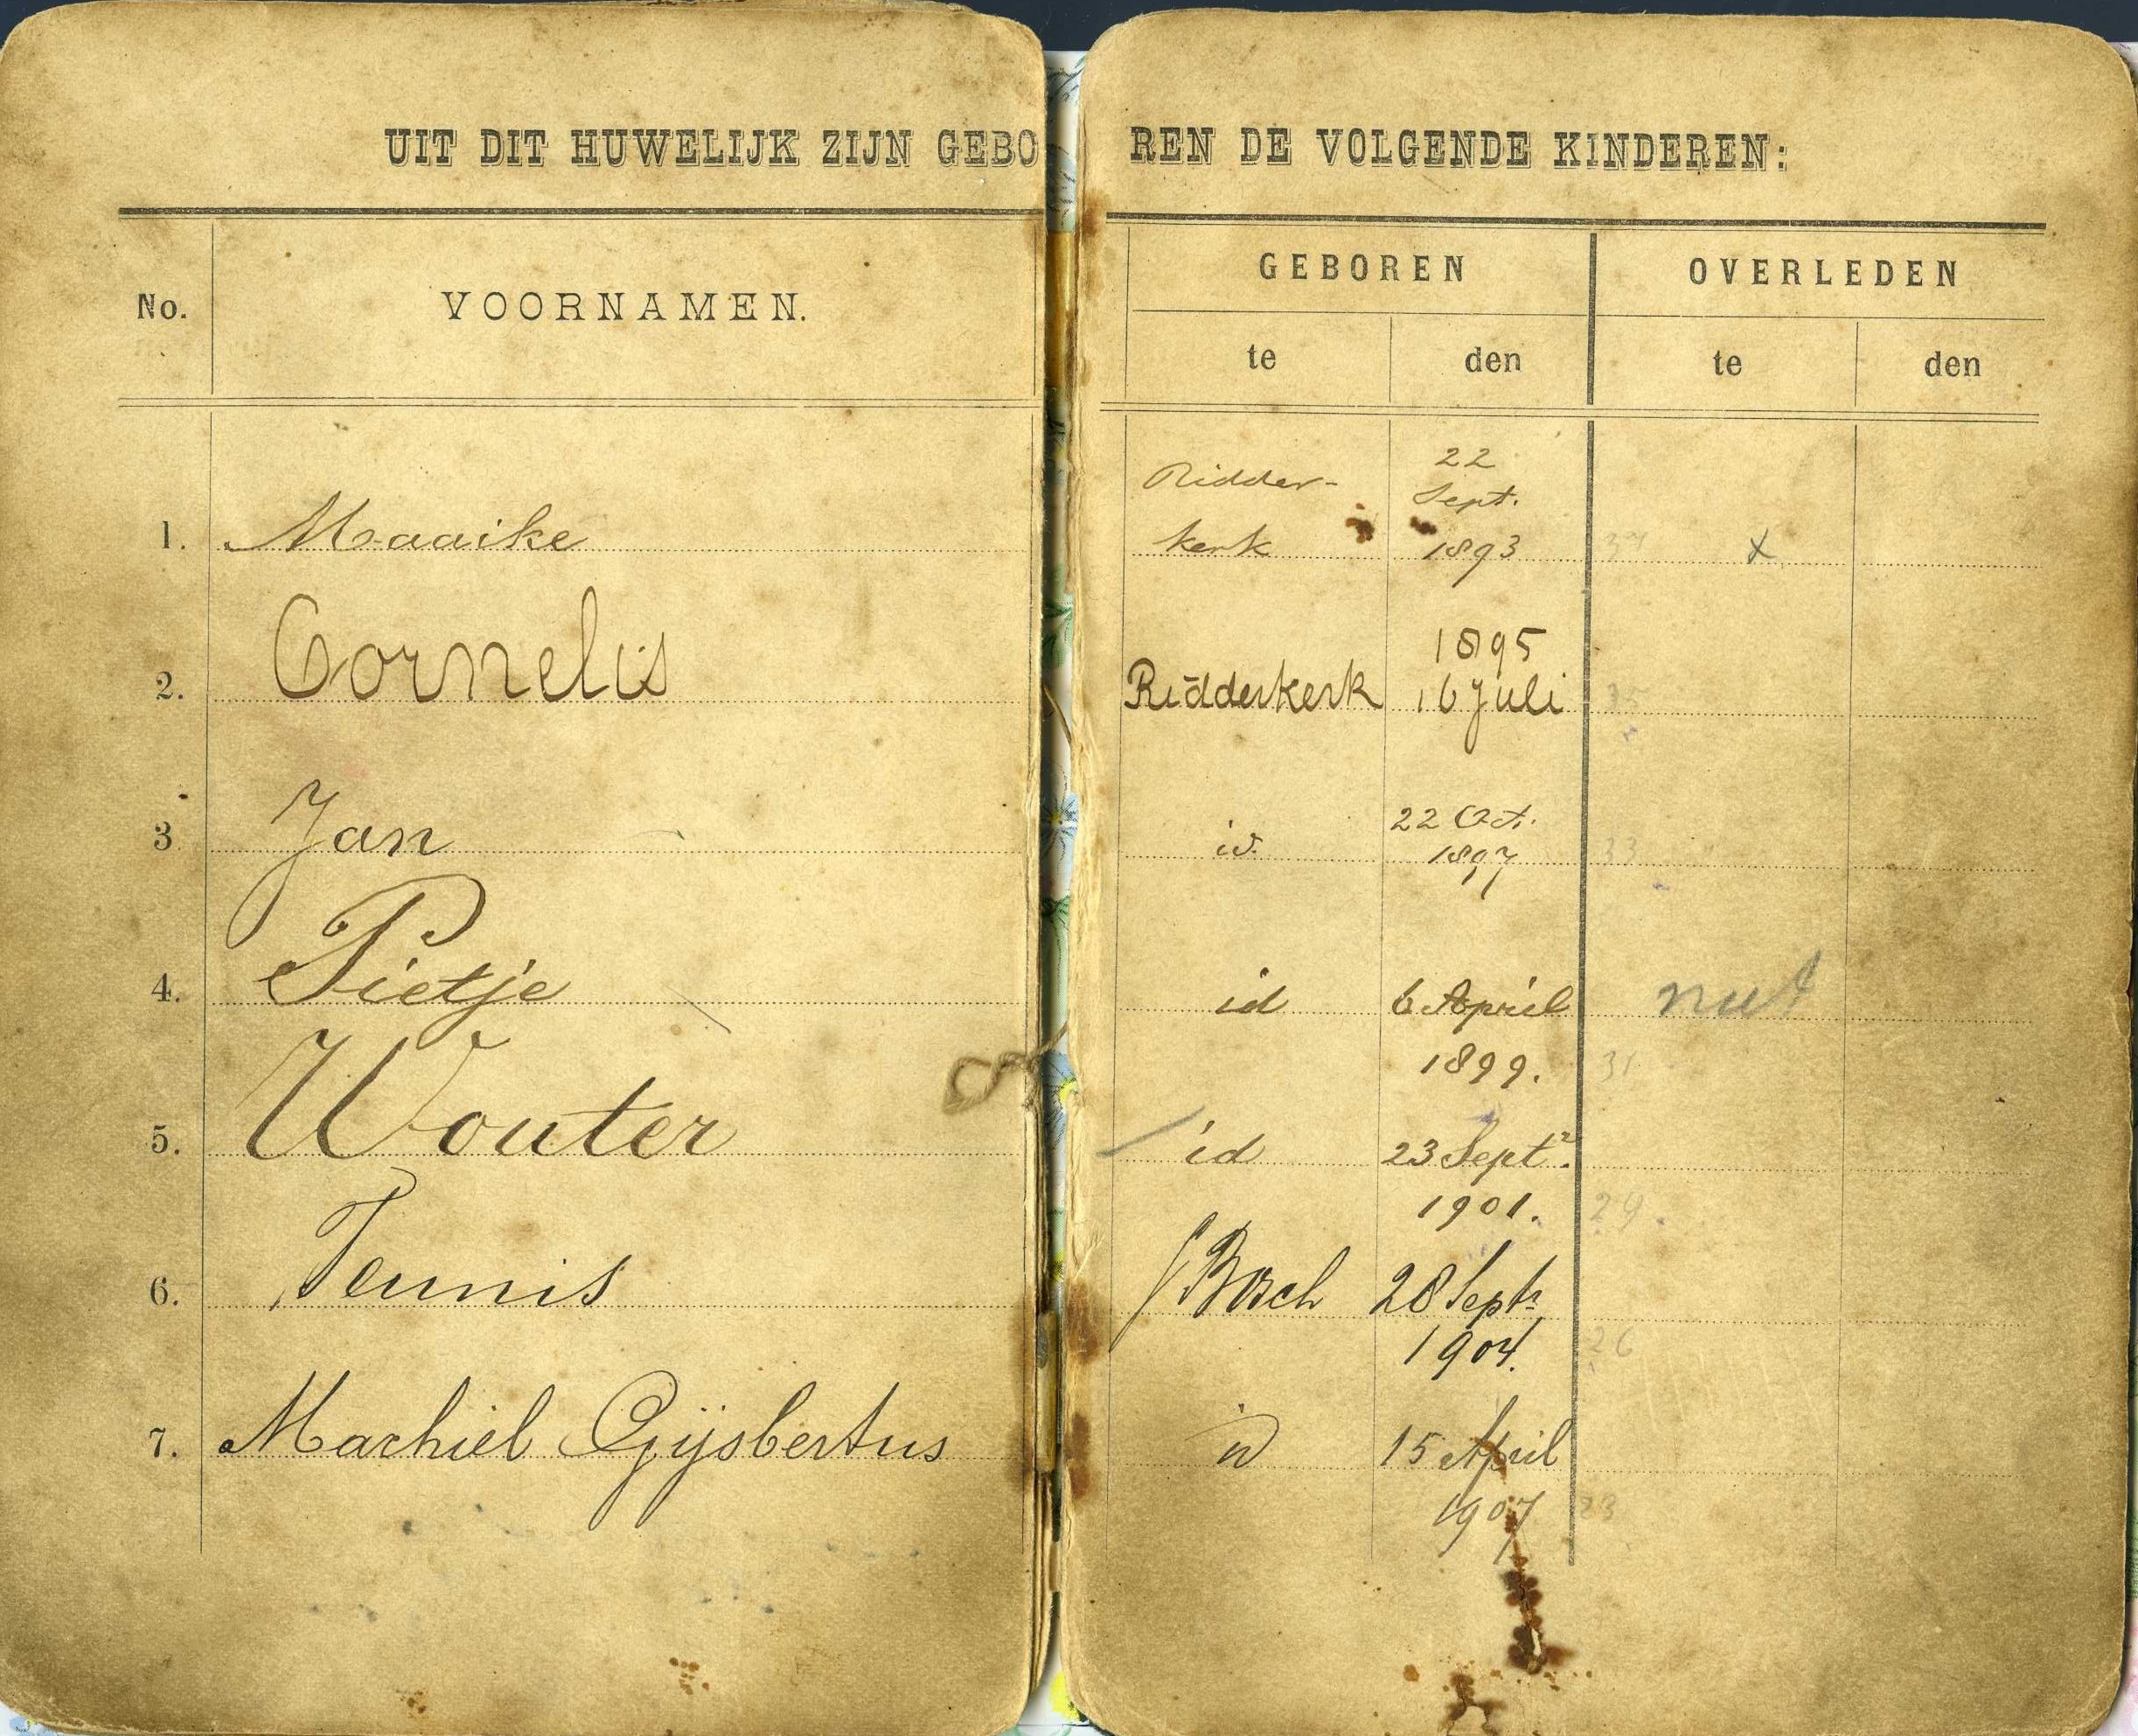 UIT DIT HUWELIJK ZIJN GEBOREN DE VOLGENDE KINDEREN:
No. VOORNAMEN. GEBOREN OVERLEDEN
te den te den
Ridder- 22
Sept.
1. Maaike kerk 1893 37 x
1895
2. Cornelis Ridderkerk 16 Juli
22 Oct.
3 Jan id. 1897 33
4. Pietje id 6 April
1899. 31
5. Wouter id 23 Sept.
1901. 29.
6. Teunis Bosch 28 Sept.
1904. 26
7. Machiel Gijsbertus id 15 April
1907 23